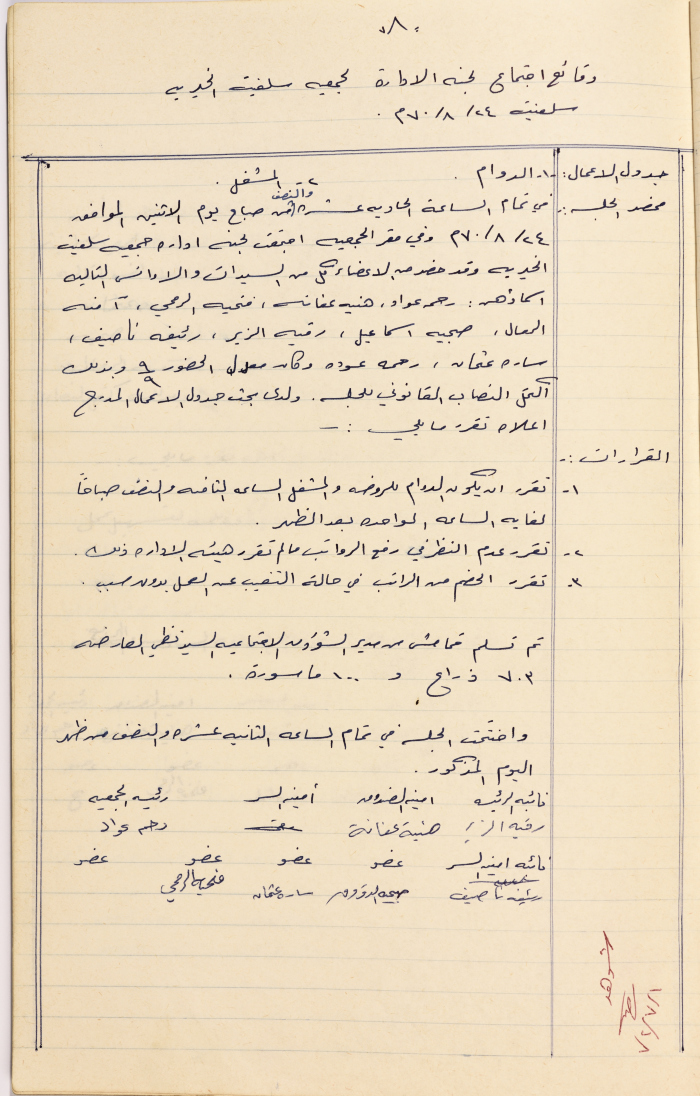 ٨٠
وقائع اجتماع لجنة الادارة لجمعيه سلفيت الخيريه
سلفيت ٢٤/ ٨/ ٧٠م .
جدول الاعمال: ١- الدوام . ٢- المشغل .
محضر الجلسه: في تمام الساعة الحاديه عشره والنصف من صباح يوم الاثنين الموافق
٢٤/ ٨/ ٧٠م وفي مقر الجمعيه اجتمعت لجنة اداره جمعيه سلفيت
الخيريه وقد حضر من الاعضاء كل من السيدات والاوانس التاليه
اسماؤهن: رحمه عواد، هنيه عفانه، فتحيه الرمحي، آمنه
، صبحيه اسماعيل، رقيه الزير، رئيفه ناصيف،
ساره عثمان، رحمه عوده وكان معدل الحضور ٩/٩ وبذلك
اكتمل النصاب القانوني للجلسه. ولدى بحث جدول الاعمال المدرج
اعلاه تقرر ما يلي :-
القرارات :-
١- تقرر ان يكون الدوام للروضه والمشغل الساعه الثامنه والنصف صباحًا
لغايه الساعه الواحده بعد الظهر .
٢- تقرر عدم النظر في رفع الرواتب مالم تقرر هيئة الاداره ذلك .
٣- تقرر الخصم من الراتب في حالة التغيب عن العمل بدون سبب .
تم تسلم قماش من مدير الشؤون الاجتماعيه السيد
٧٠٣ ذراع و ١٠٠ ماسورة .
واختتمت الجلسه في تمام الساعه الثانيه عشره والنصف من ظهر
اليوم المذكور .
نائبه الرئيسه امينه الصندوق أمينه السر رئيسه الجمعيه
رقيه الزير هنية عفانة رحمه عواد
نائبه امينه السر عضو عضو عضو عضو
رئيفه ناصيف ساره عثمان فتحيه الرمحي